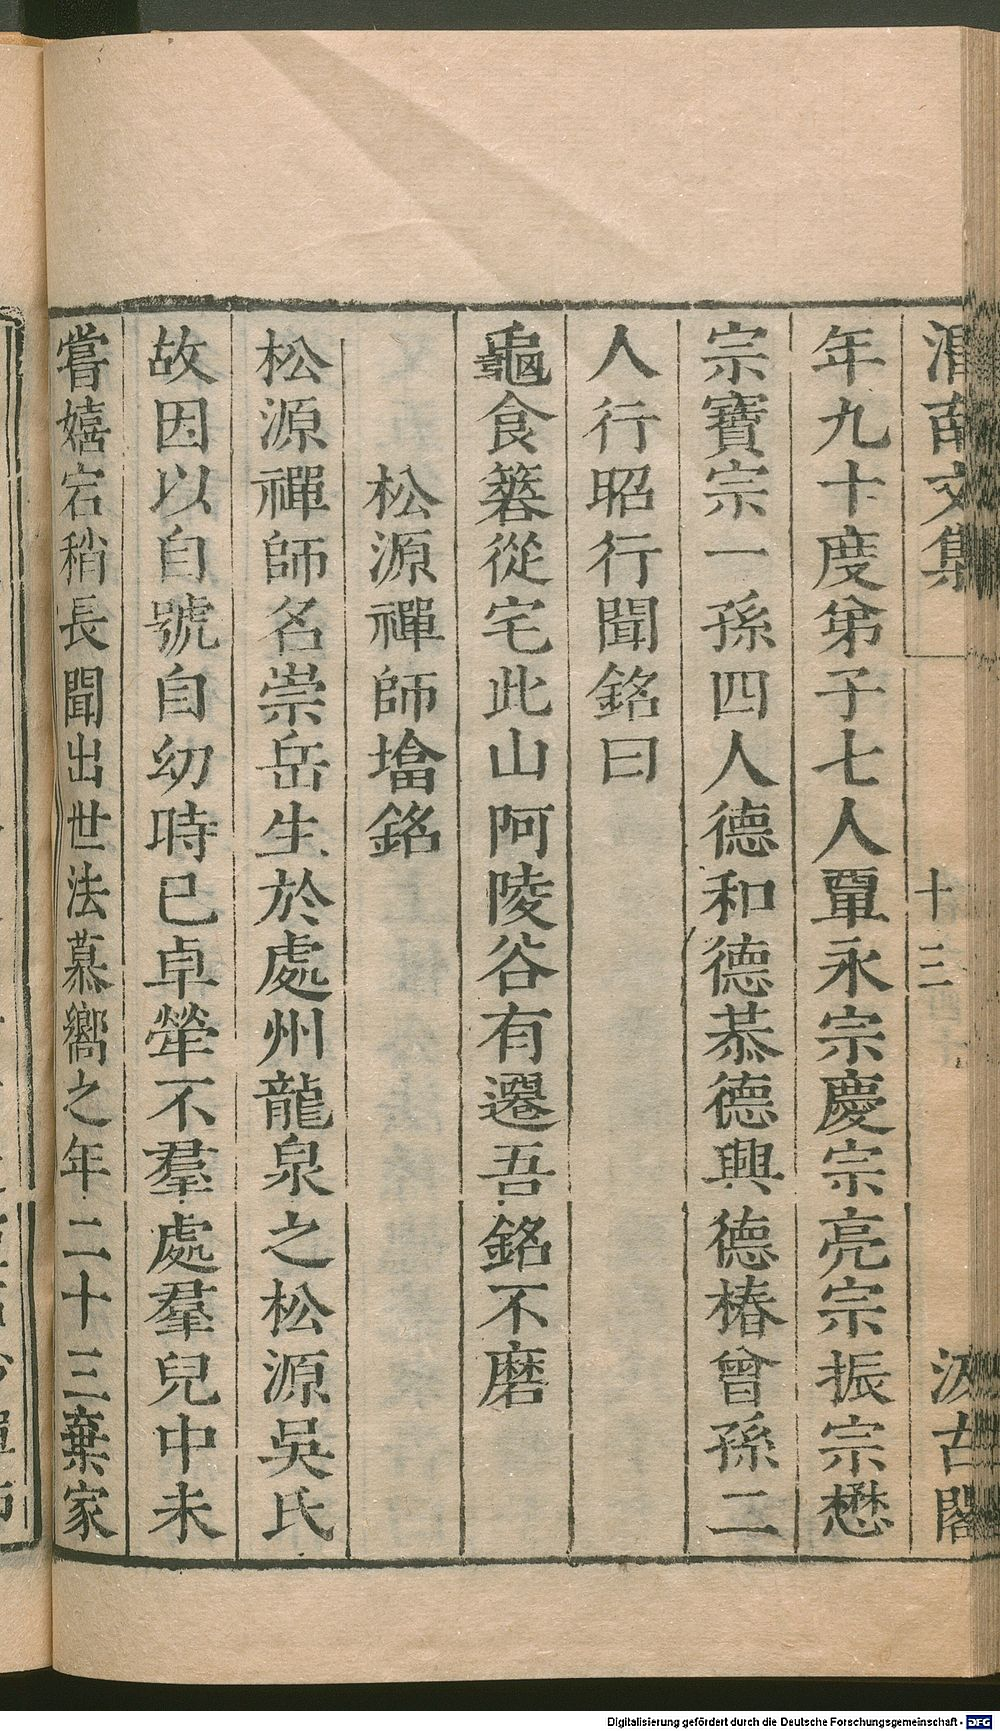 渭南文集 十三 汲古閣
年九十度弟子七人覃永宗慶宗亮宗振宗懋
宗寶宗一孫四人德和德恭德興德椿曾孫二
人行昭行聞銘曰
龜食簭從宅此山阿陵谷有遷吾銘不磨
松源禪師墖銘
松源禪師名崇岳生於處州龍泉之松源吳氏
故因以自號自幼時已卓犖不羣處羣兒中未
嘗嬉宕稍長聞出世法慕嚮之年二十三棄家
Digitalisierung gefördert durch die Deutsche Forschungsgemeinschaft - DFG